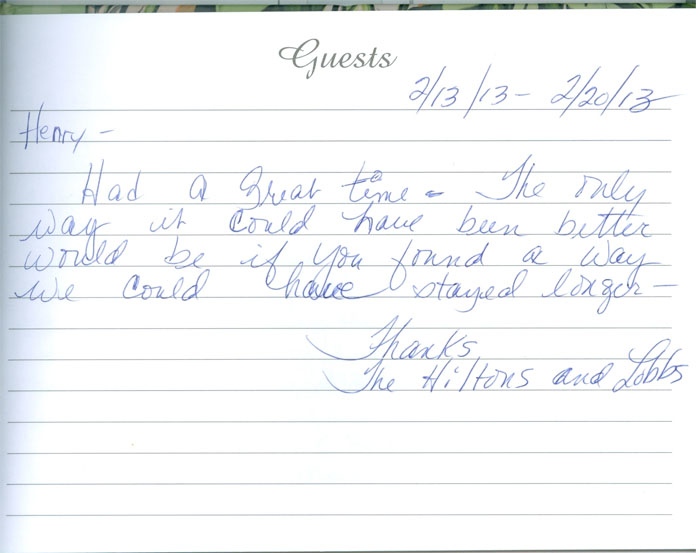 Guests
2/13/13 - 2/20/13
Henry -
Had a great time - The only
way it could have been better
would be if you found a way
we could have stayed longer -
Thanks
The Hiltons and Lobbs